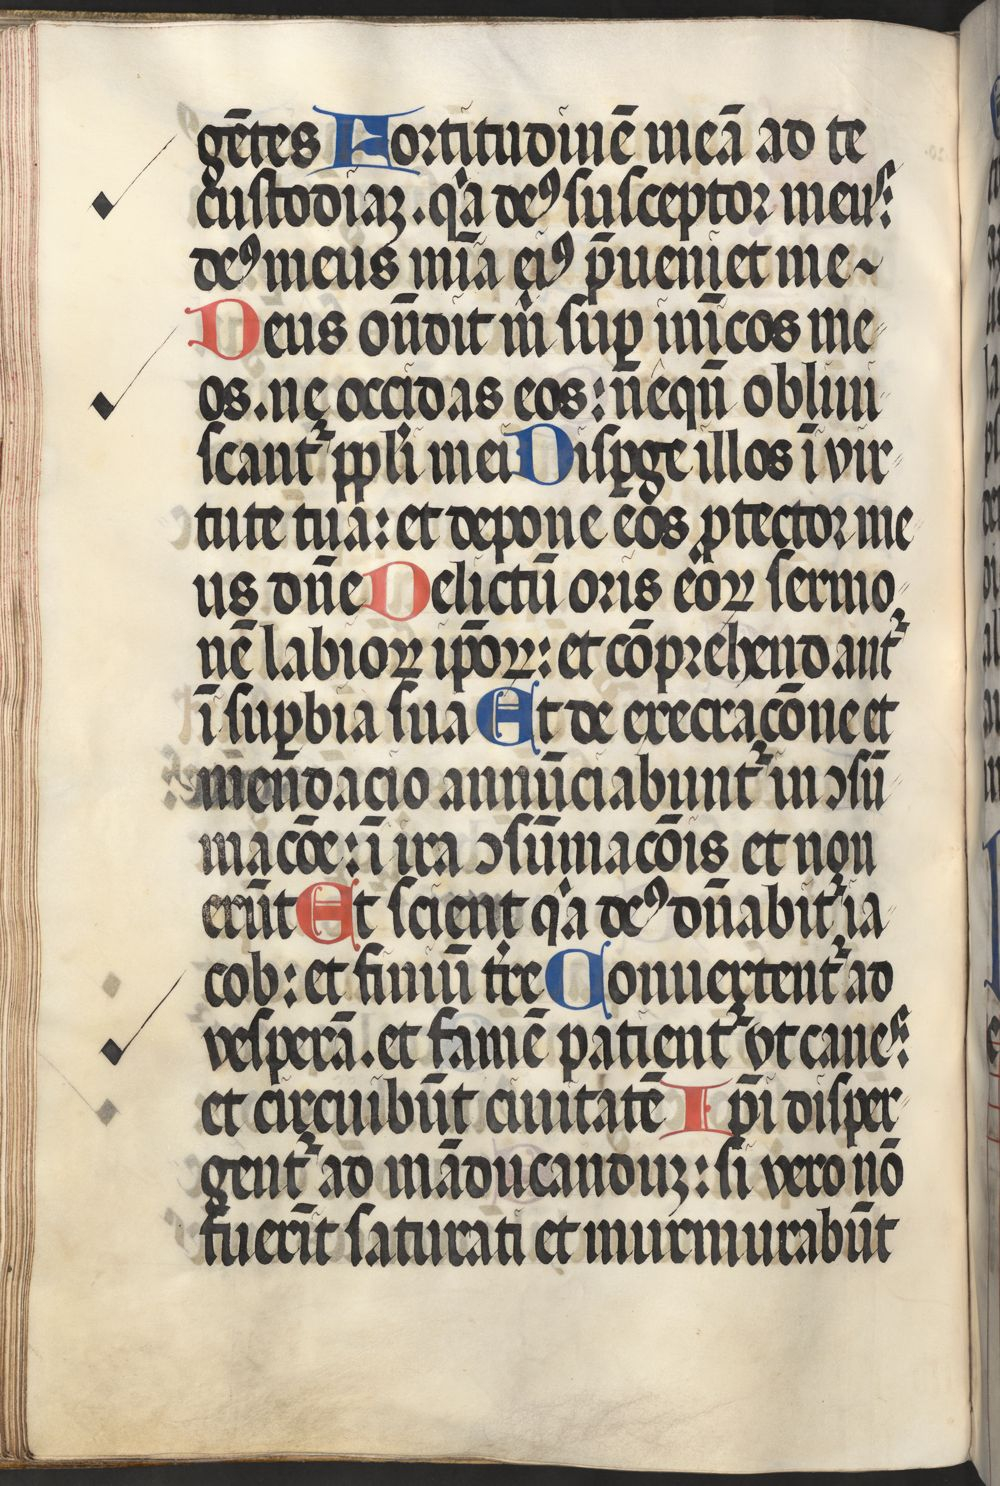 gētes Fortitudinē meā ad te
custodiaꝫ. qͥa deꝰ susceptor meus:
deꝰ meus mīa eiꝰ p̄ueniet me~
Deus on̄dit m̄ suꝑ inīcos me
os. ne occidas eos: n̄equn̄ oblivi
scantᷣ ppl̄i mei Disꝑge illos ī vir
tute tua: et depone eos ꝓtector me
us dn̄e Delictū oris eoꝝ sermo
nē labioꝝ ip̄oꝝ: et cōprehendantᷣ
ī suꝑbia sua Et de execracōne et
mendacio annūciabuntᷣ in ↄsū
macōe: ī ira ↄsūmacōis et non
erūt Et scient qͥa deꝰ dn̄abitᷣ ia
cob: et finiū t̄re Conuertentᷣ ad
vesperā. et famē patientᷣ vt canes:
et circuibūt ciuitatē Ip̄i disper
gentᷣ ad māducanduꝫ: si vero nō
fuerīt saturati et murmurabūt